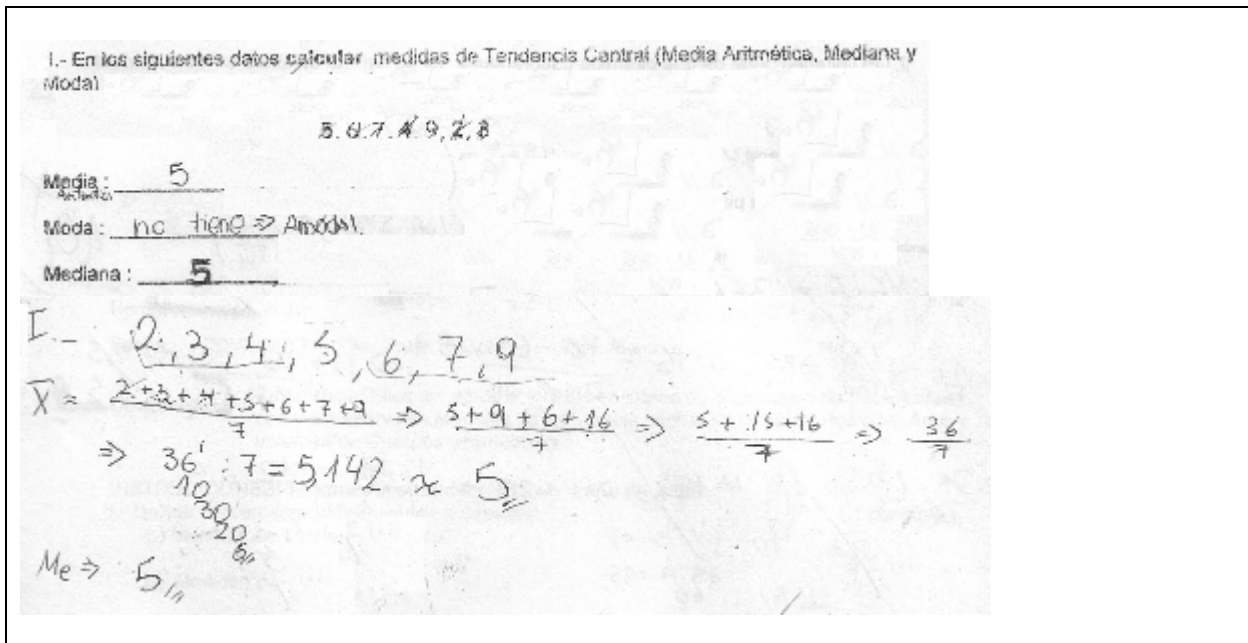 I.- En los siguientes datos calcular medidas de Tendencia Central (Media Aritmética, Mediana y
Moda)
5. 6. 7. 4. 9, 2, 3
Media : 5
Aritmética
Moda : no tiene => Amodal.
Mediana : 5
I - 2, 3, 4, 5, 6, 7, 9
X̄ = 2+3+4+5+6+7+9 / 7 => 5+9+6+16 / 7 => 5+15+16 / 7 => 36 / 7
=> 36' : 7 = 5,142 ≈ 5
10
30
20
6
Me => 5